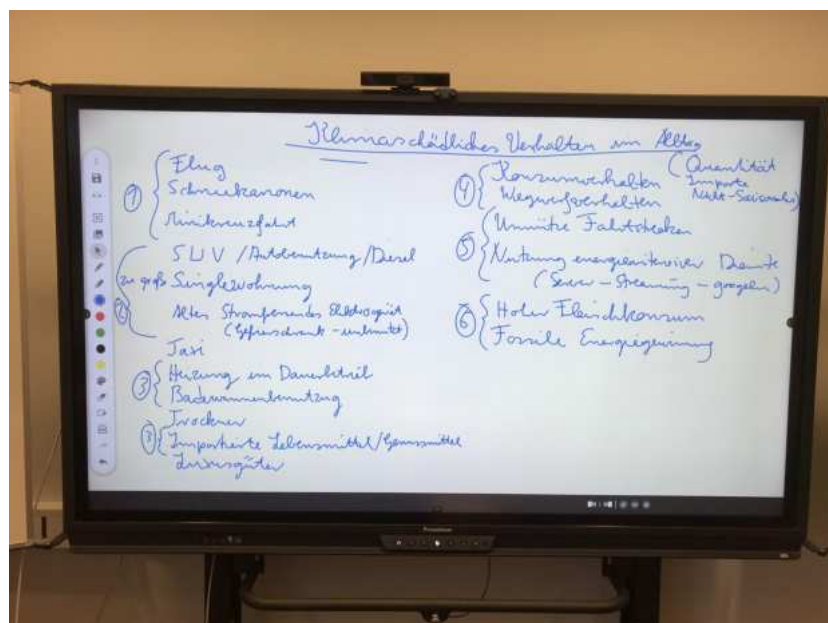 Klimaschädliches Verhalten im Alltag
① Flug
Schneekanonen
Minikreuzfahrt
② SUV / Autobenutzung / Diesel
zu große Singlewohnung
Altes Stromfressendes Elektrogerät
(Gefrierschrank - unbenutzt)
Taxi
③ Heizung im Dauerbetrieb
Badewannenbenutzung
Trockner
③ Importierte Lebensmittel/Genussmittel
Luxusgüter
④ Konsumverhalten (Quantität
Importe
Nicht-Saisonales)
Wegwerfverhalten
⑤ Unnütze Fahrtstrecken
Nutzung energieintensiver Dienste
(Server - Streaming - googeln)
⑥ Hoher Fleischkonsum
Fossile Energiegewinnung
Promethean